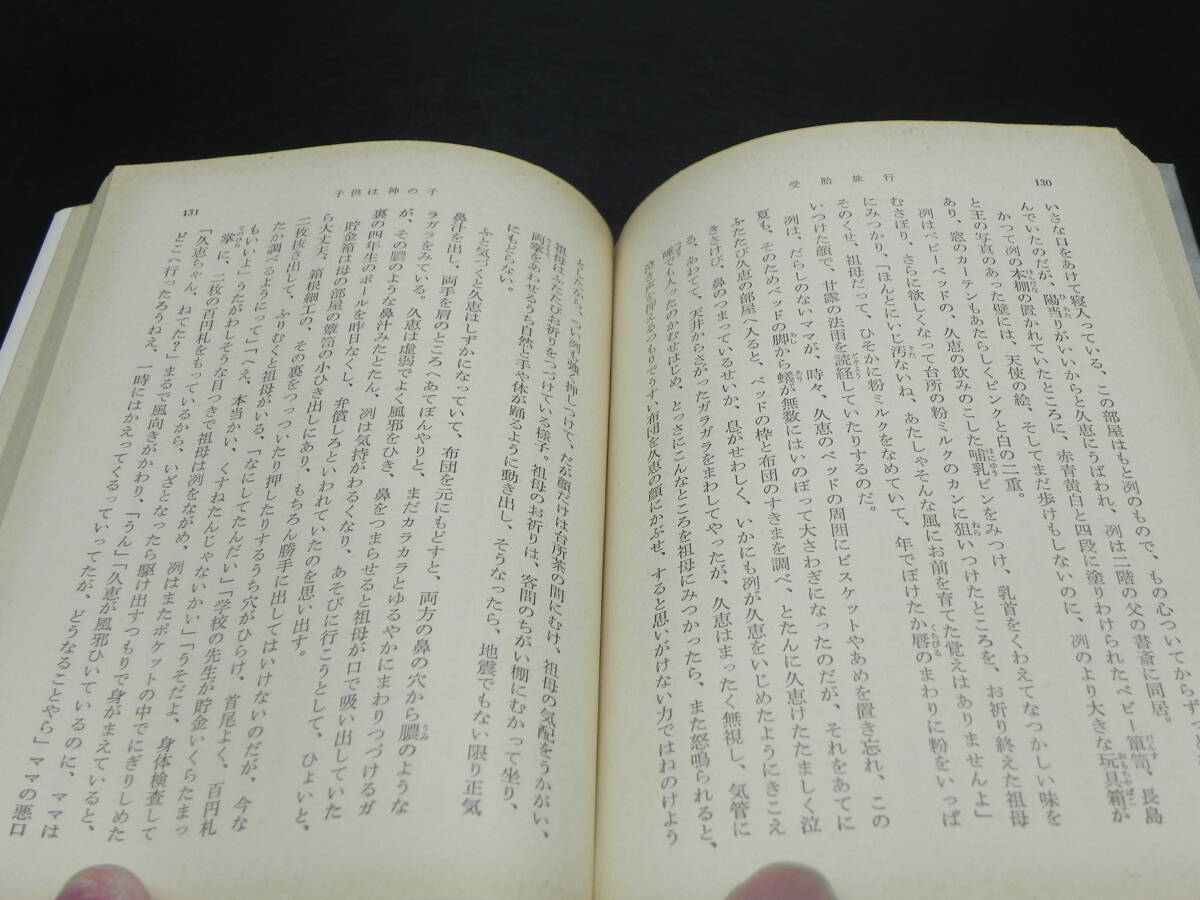 130
受胎旅行
いさな口をあけて寝入っている、この部屋はもと冽のもので、もの心ついてからず
んでいたのだが、陽当りがいいからと久恵にうばわれ、冽は二階の父の書斎に同居。
かつて冽の本棚の置かれていたところに、赤青黄白と四段に塗りわけられたベビー箪笥、長島
と王の写真のあった壁には、天使の絵、そしてまだ歩けもしないのに、冽のより大きな玩具箱が
あり、窓のカーテンもあたらしくピンクと白の二重。
冽はベビーベッドの、久恵の飲みのこした哺乳ビンをみつけ、乳首をくわえてなつかしい味を
むさぼり、さらに欲しくなって台所の粉ミルクのカンに狙いつけたところを、お祈り終えた祖母
にみつかり、「ほんとにいじ汚ないね、あたしゃそんな風にお前を育てた覚えはありませんよ」
そのくせ、祖母だって、ひそかに粉ミルクをなめていて、年でぼけたか唇のまわりに粉をいっぱ
いつけた顔で、甘露の法雨を読経していたりするのだ。
冽は、だらしのないママが、時々、久恵のベッドの周囲にビスケットやあめを置き忘れ、この
夏も、そのためベッドの脚から蟻が無数にはいのぼって大さわぎになったのだが、それをあてに
ふたたび久恵の部屋へ入ると、ベッドの枠と布団のすきまを調べ、とたんに久恵けたたましく泣
きさけび、鼻のつまっているせいか、息がせわしく、いかにも冽が久恵をいじめたようにきこえ
る、あわてて、天井からさがったガラガラをまわしてやったが、久恵はまったく無視し、気管に
唾でも入ったのかむせはじめ、とっさにこんなところを祖母にみつかったら、また怒鳴られると、
泣き声を抑えるつもりでうすい布団を久恵の顔にかぶせ、すると思いがけない力ではねのけよう
131
子供は神の子
としたから、つい冽も強く押しつけて、だが顔だけは台所茶の間にむけ、祖母の気配をうかがい、
祖母はふたたびお祈りをつづけている様子。祖母のお祈りは、客間のちがい棚にむかって坐り、
両掌をあわせるうち自然と手や体が踊るように動き出し、そうなったら、地震でもない限り正気
にもどらない。
ふと気づくと久恵はしずかになっていて、布団を元にもどすと、両方の鼻の穴から膿のような
鼻汁を出し、両手を肩のところへあてぼんやりと、まだカラカラとゆるやかにまわりつづけるガ
ラガラをみている。久恵は虚弱でよく風邪をひき、鼻をつまらせると祖母が口で吸い出していた
が、その膿のような鼻汁みたとたん、冽は気持がわるくなり、あそびに行こうとして、ひょいと、
裏の四年生のボールを昨日なくし、弁償しろといわれていたのを思い出す。
貯金箱は母の部屋の簞笥の小ひき出しにあり、もちろん勝手に出してはいけないのだが、今な
ら大丈夫、箱根細工の、その裏をつっついたり押したりするうち穴がひらけ、首尾よく、百円札
二枚抜き出して、ふりむくと祖母がいる、「なにしてたんだい」「学校の先生が貯金いくらたまっ
たか調べるようにって」「へえ、本当かい、くすねたんじゃないかい」「うそだよ、身体検査して
もいいよ」うたがわしそうな目つきで祖母は冽をながめ、冽はまたポケットの中でにぎりしめた
掌に、二枚の百円札をもっているから、いざとなったら駆け出すつもりで身がまえていると、
「久恵ちゃん、ねてた？」まるで風向きがかわり、「うん」「久恵が風邪ひいているのに、ママは
どこへ行ったろうねえ、一時にはかえってくるっていってたが、どうなることやら」ママの悪口